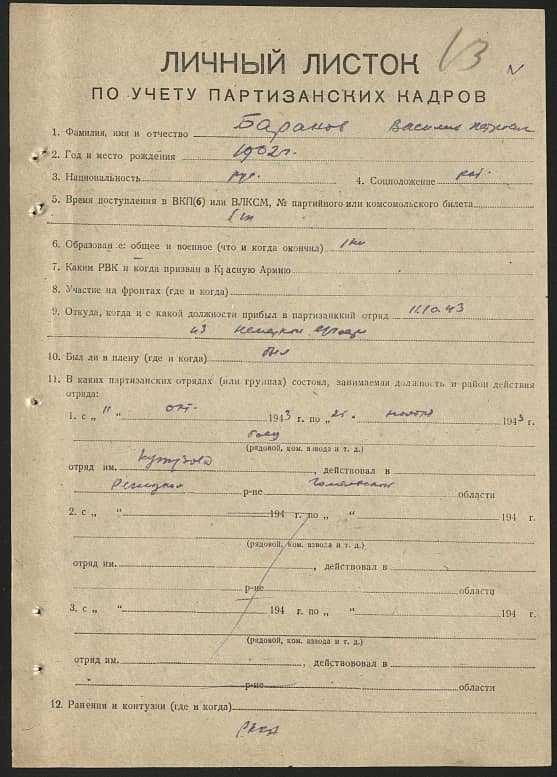 13
ЛИЧНЫЙ ЛИСТОК
ПО УЧЕТУ ПАРТИЗАНСКИХ КАДРОВ
1. Фамилия, имя и отчество Баранов Василий Петрович
2. Год и место рождения 1902 г.
3. Национальность рус. 4. Соцположение
5. Время поступления в ВКП(б) или ВЛКСМ, № партийного или комсомольского билета
б/п
6. Образован е: общее и военное (что и когда окончил)
7. Каким РВК и когда призван в Красную Армию
8. Участие на фронтах (где и когда)
9. Откуда, когда и с какой должности прибыл в партизанский отряд 11.10.43
из немецкой
10. Был ли в плену (где и когда) был
11. В каких партизанских отрядах (или группах) состоял, занимаемая должность и район действия
отряда:
1. с „ 11 “ окт. 1943 г. по „ 25 “ ноября 1943 г.
боец
(рядовой, ком. взвода и т. д.)
отряд им. Кутузова, действовал в
Речицком р-не Гомельской области
2. с „ “ 194 г. по „ “ 194 г.
(рядовой, ком. взвода и т. д.)
отряд им. , действовал в
р-не области
3. с „ “ 194 г. по „ “ 194 г.
(рядовой, ком. взвода и т. д.)
отряд им. , действововал в
р-не области
12. Ранения и контузии (где и когда)